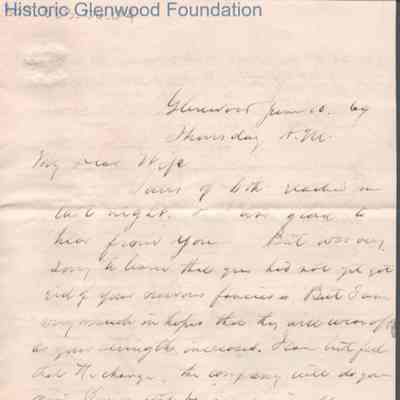 Historic Glenwood Foundation
Glenwood June 10. 69
Thursday A.M.
My dear Wife
Yours of 6th reached me
last night. I was glad to
hear from you But was very
sorry to learn that you had not yet got
rid of your nervous fancies. But I am
very much in hopes that they will wear off
as your strength increases. I can but feel
that the change, the company will do you